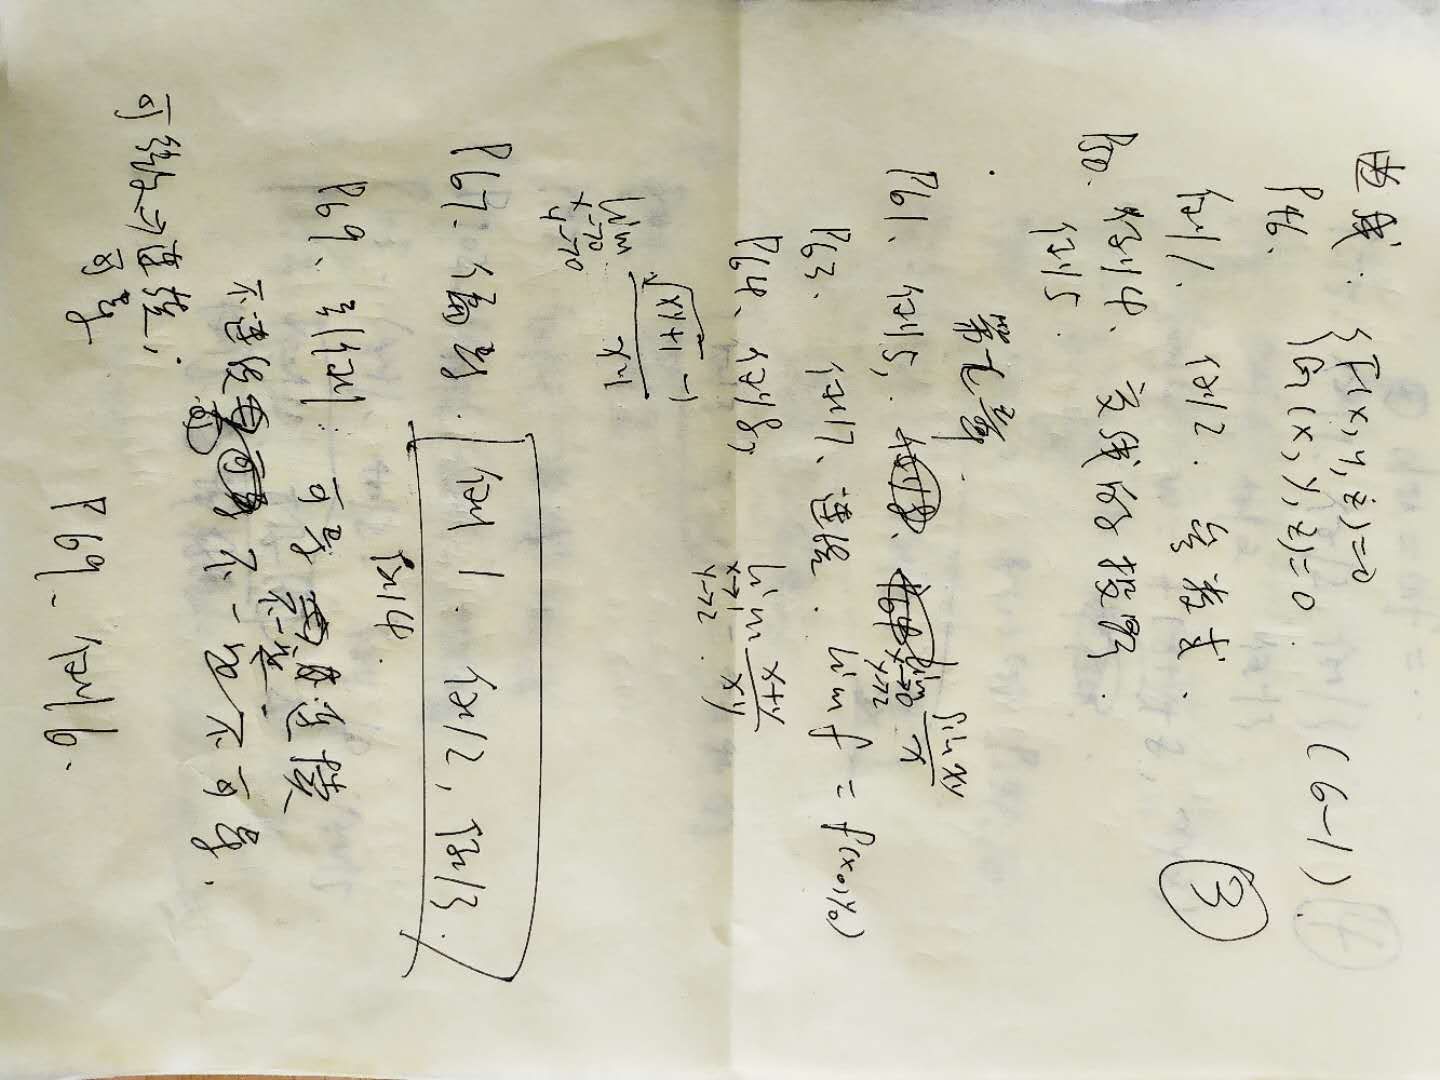 曲线. {F(x,y,z)=0
P46. {G(x,y,z)=0. (6-1).
③
例1. 例2. 参数式.
P50. 例4、交线的投影.
例5.
第七章.
P61、例5, lim x→0 y→2 sin xy / x
P63. 例7、连续. lim f = f(x₀,y₀)
P64、例8, lim x→1 y→2 (x+y)/(xy).
lim x→0 y→0 (√(xy+1) -1)/(xy)
P67、偏导. 例1. 例2, 例3.
例4.
P69、引例: 可导 不一定 连续
不连续 不一定不可导.
可微⇒连续;
可导
P69、例6.